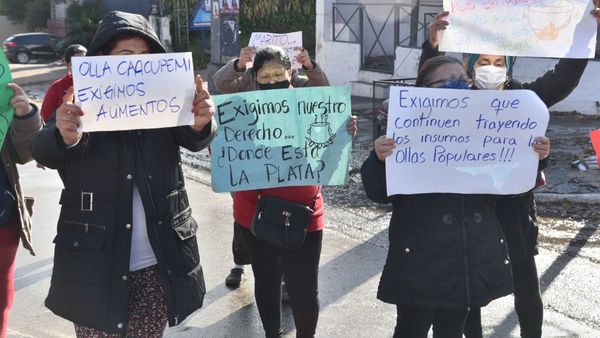 OLLA CAACUPEMI
EXIGIMOS
AUMENTOS
MARITO
EXIGIMOS NUESTRO
DERECHO...
¿DONDE ESTA
LA PLATA?
EXIGIMOS QUE
CONTINUEN TRAYENDO
LOS INSUMOS PARA LAS
OLLAS POPULARES!!!